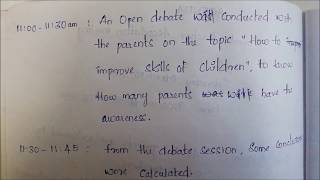 11:00 - 11:30am : An Open debate will conducted with
the parents on the topic "How to
improve skills of children", to know
How many parents have the
awareness.
11:30 - 11:45 : from the debate session, Some
were calculated.